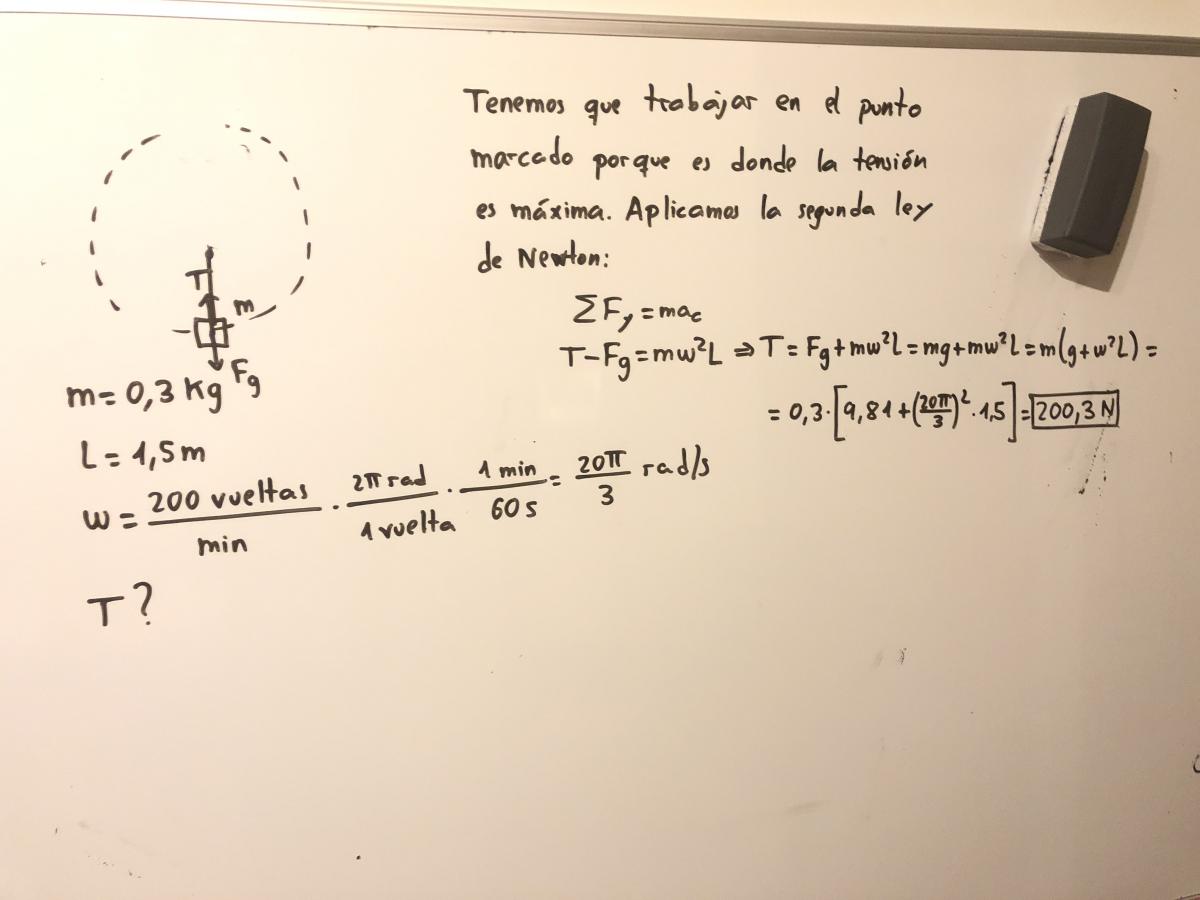 Tenemos que trabajar en el punto
marcado porque es donde la tensión
es máxima. Aplicamos la segunda ley
de Newton:
ΣF_y = ma_c
T - F_g = mw²L ⇒ T = F_g + mw²L = mg + mw²L = m(g + w²L) =
= 0,3 · [9,81 + (20π/3)² · 1,5] = 200,3 N
T
m
F_g
m = 0,3 Kg
L = 1,5 m
w = 200 vueltas/min · 2π rad/1 vuelta · 1 min/60 s = 20π/3 rad/s
T?